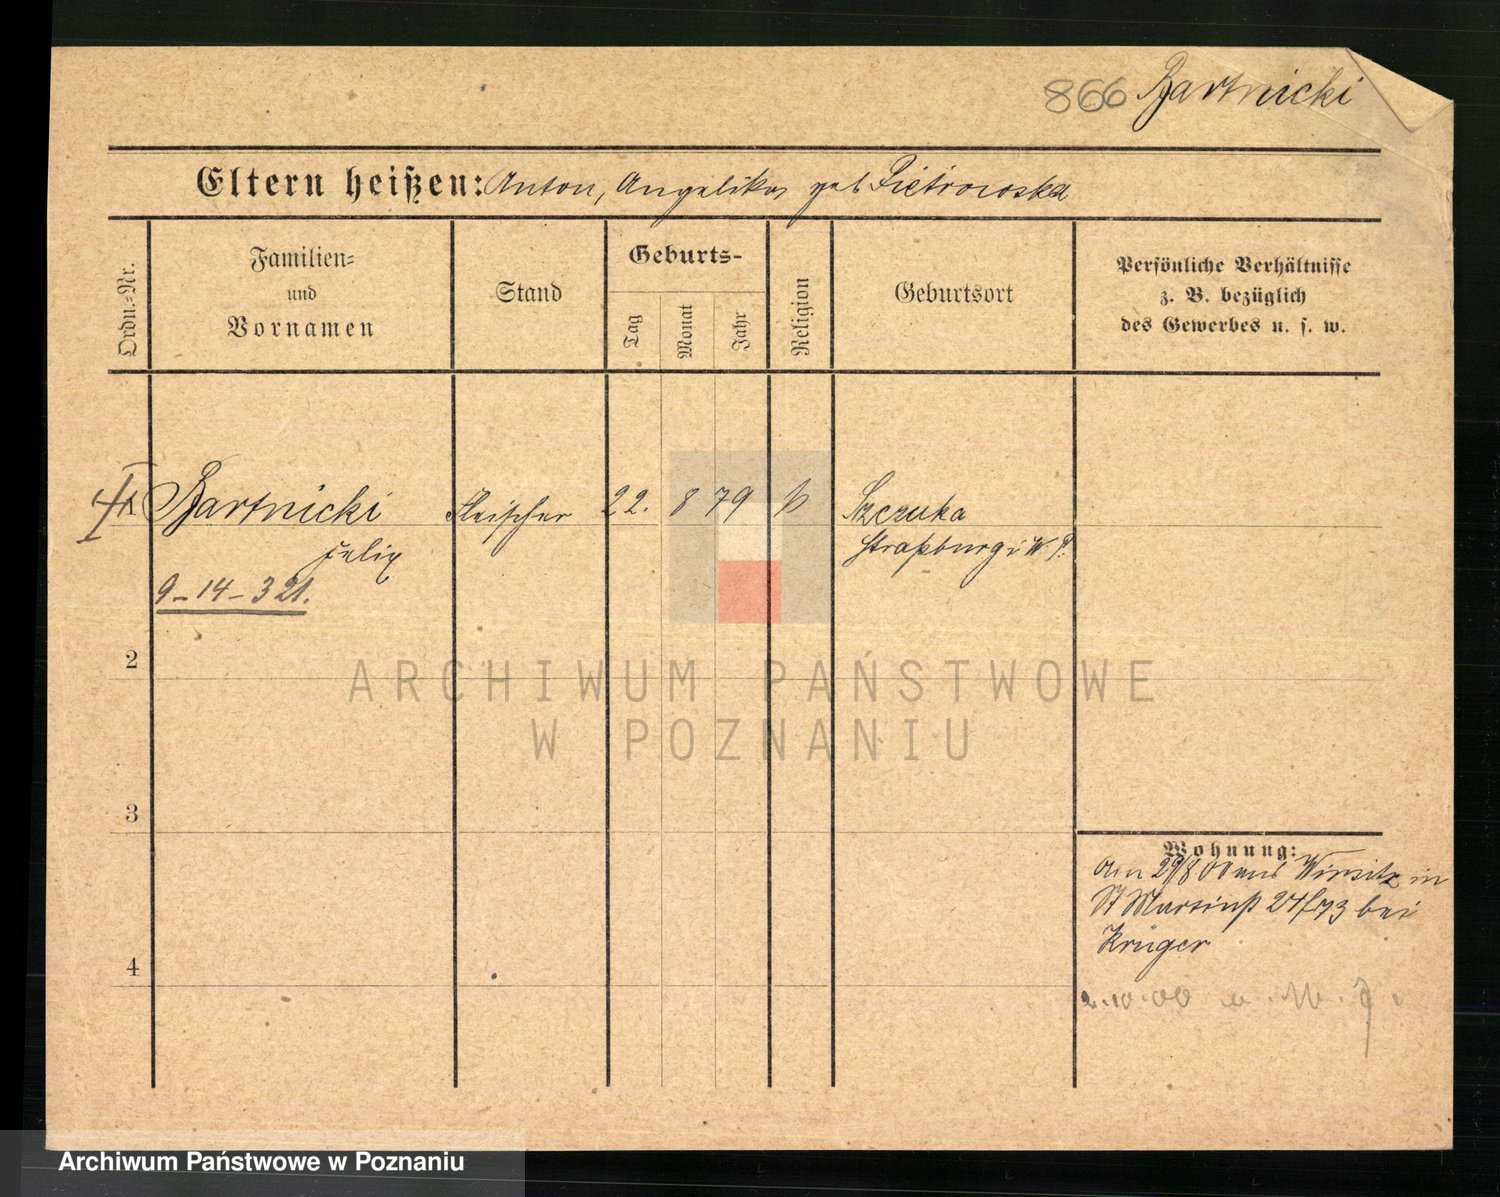 866 Bartnicki
Eltern heißen: Anton, Angelika geb Pietrowska
Ordn.-Nr.
Familien-
und
Vornamen
Stand
Geburts-
Tag
Monat
Jahr
Religion
Geburtsort
Persönliche Verhältnisse
z. B. bezüglich
des Gewerbes u. s. w.
1 Bartnicki Fleischer 22. 8 79 k Szczuka
Felix Straßburg i W P.
9-14-321.
2
3
4
Wohnung:
Am 29/8 00 aus Wirsitz in
St Martinst 24/73 bei
Krüger
2.10.00
ARCHIWUM PAŃSTWOWE
W POZNANIU
Archiwum Państwowe w Poznaniu